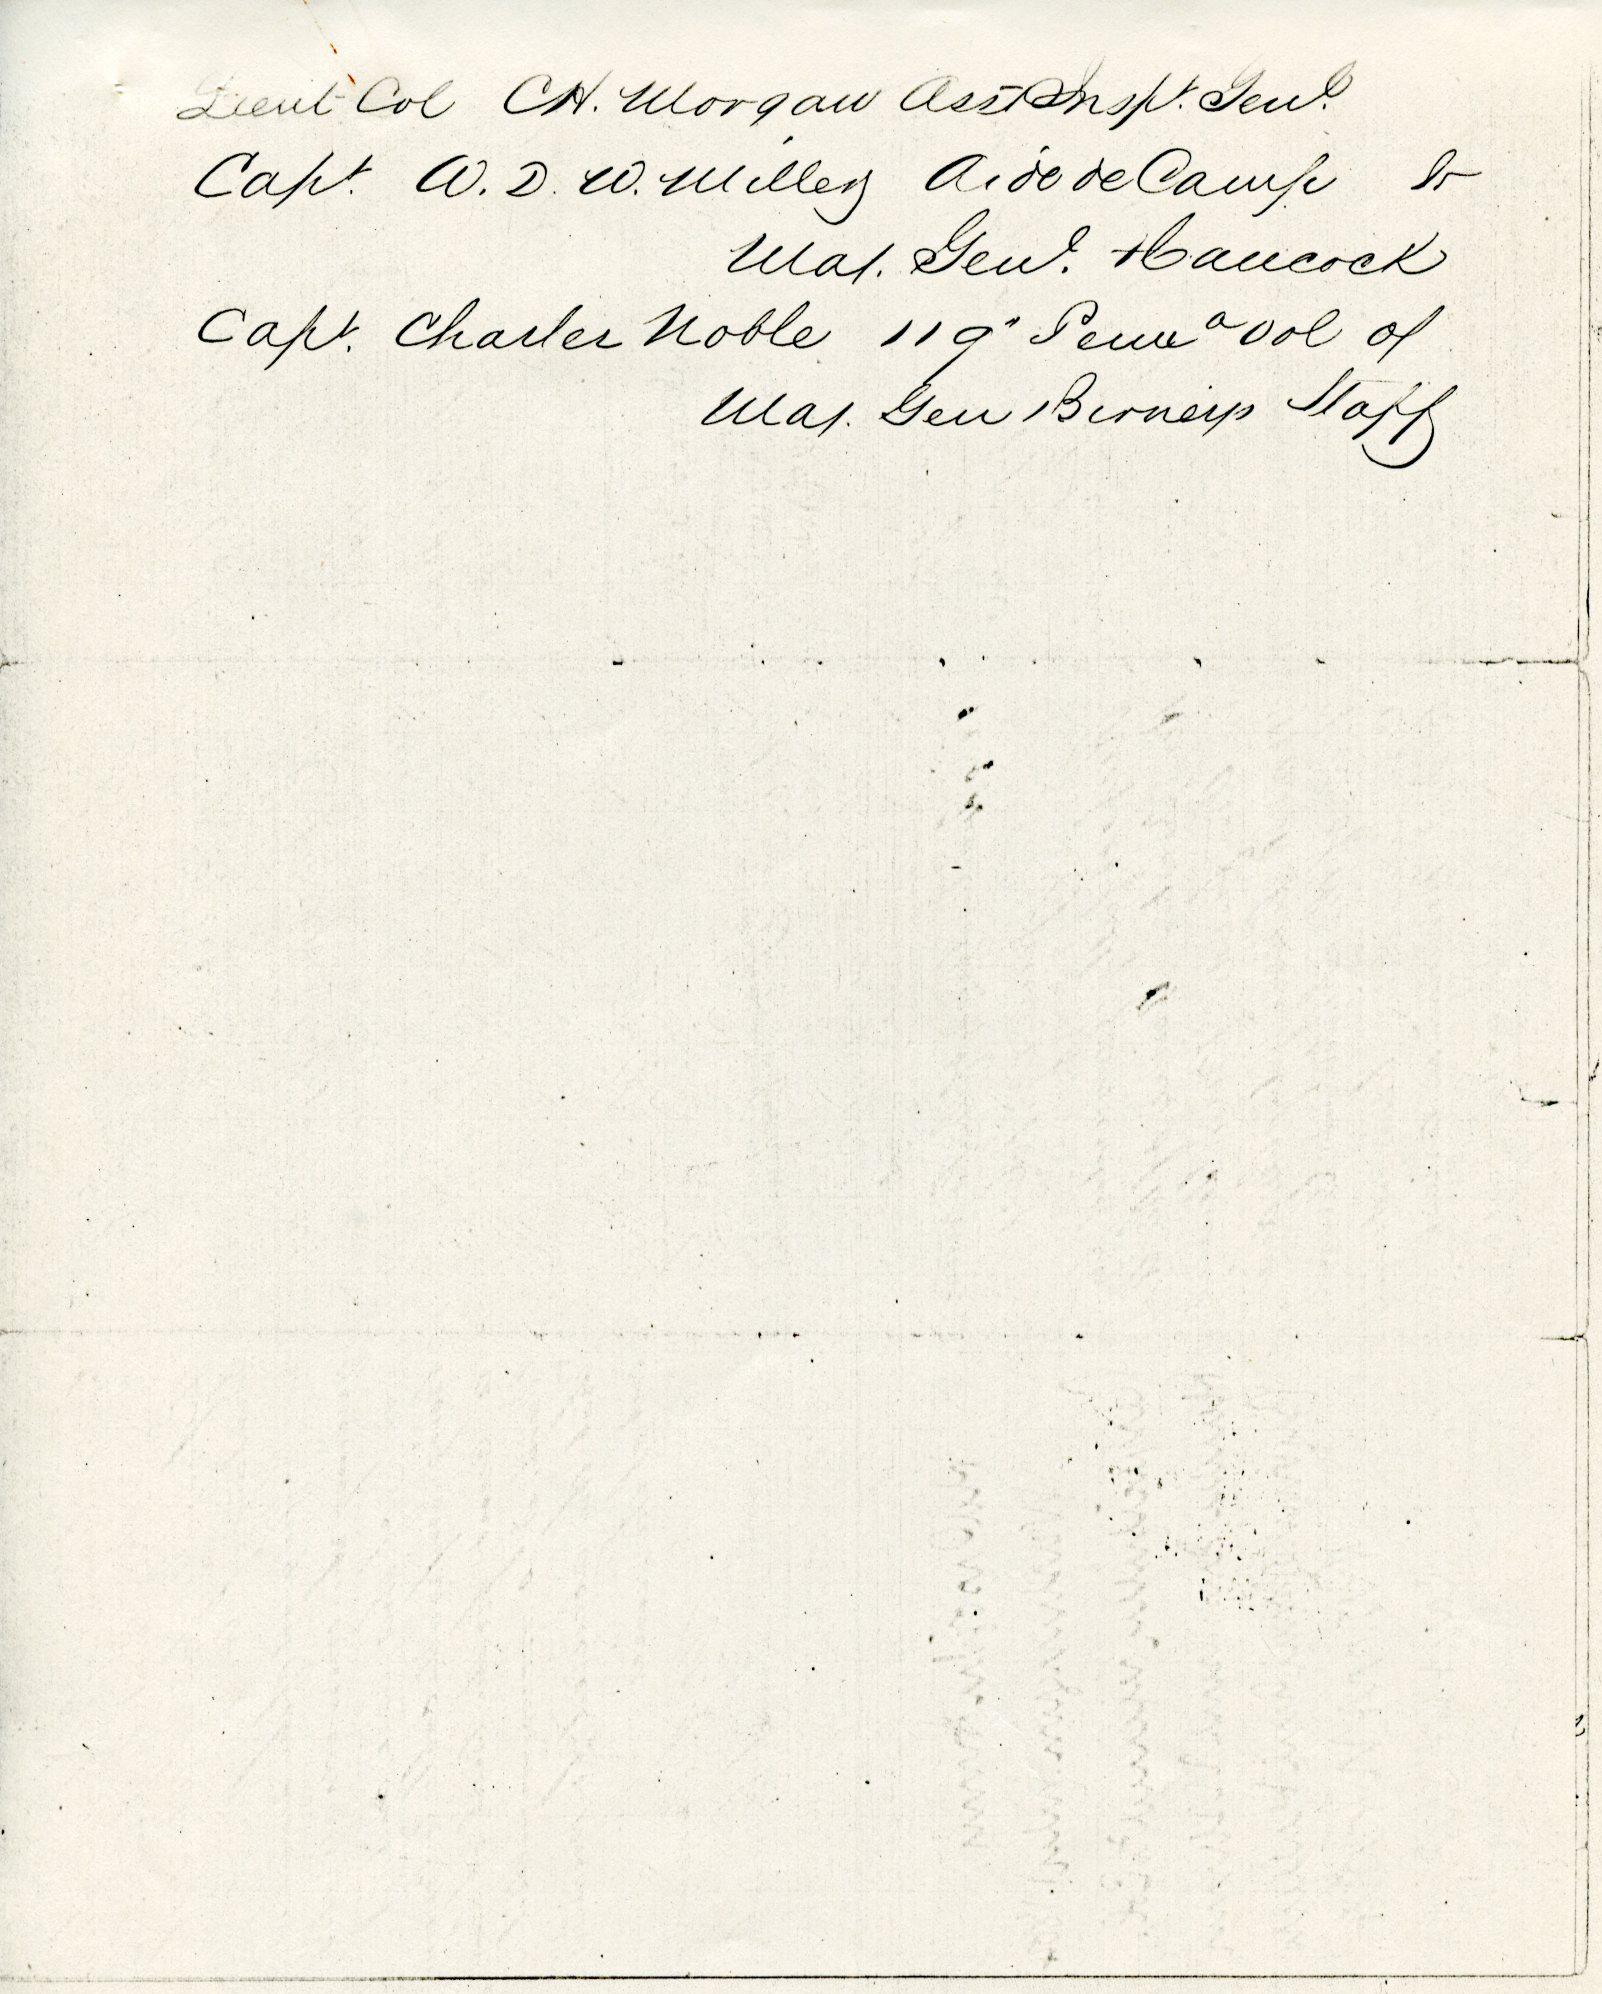 Lieut Col C.H. Morgan Asst Inspt. Genl.
Capt. W. D. W. Miller Aide de Camp to
Maj. Genl. Hancock
Capt. Charles Noble 119" Penna Vol of
Maj. Gen Birneys Staff